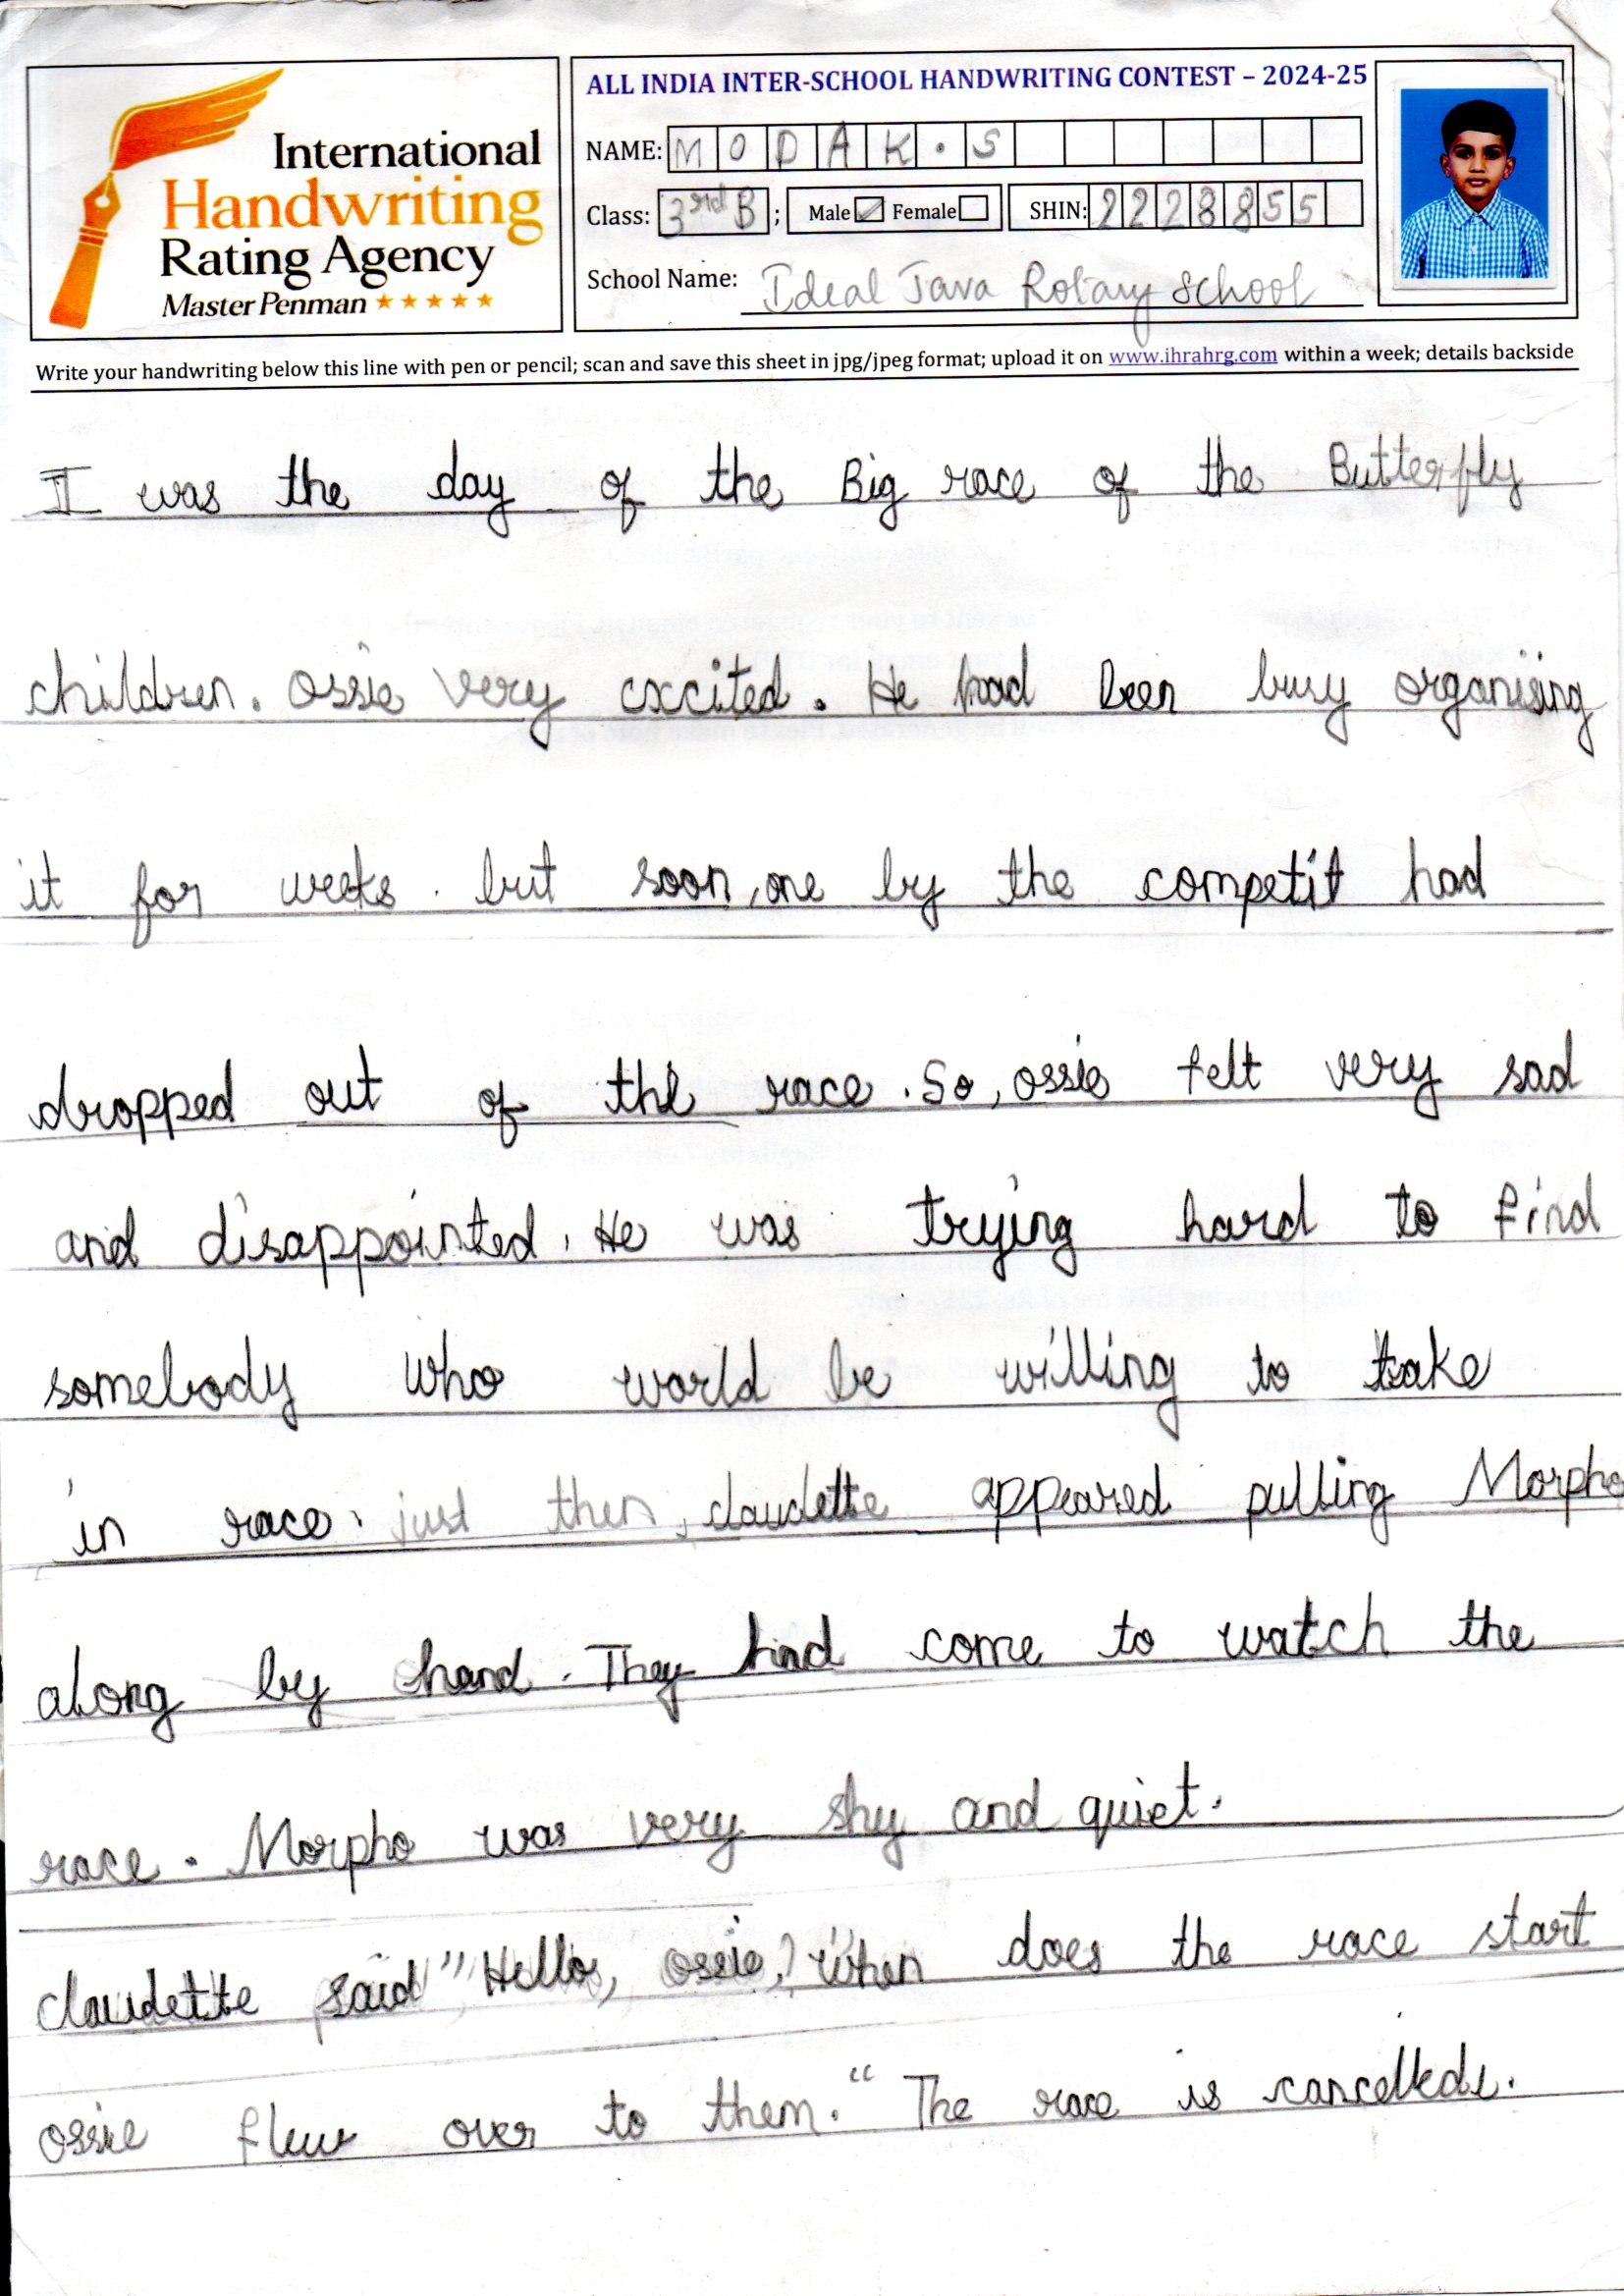 International
Handwriting
Rating Agency
Master Penman
ALL INDIA INTER-SCHOOL HANDWRITING CONTEST – 2024-25
NAME: MODAK.S
Class: 3rd B ; Male Female SHIN: 2228855
School Name: Ideal Java Rotary School
Write your handwriting below this line with pen or pencil; scan and save this sheet in jpg/jpeg format; upload it on www.ihrahrg.com within a week; details backside
It was the day of the Big race of the Butterfly
children. Ossie very excited. He had been busy organising
it for weeks. but soon, one by the competit had
dropped out of the race. So, ossie felt very sad
and disappointed. He was trying hard to find
somebody who world be willing to take
in race. just then, claudette appeared pulling Morpho
along by hand. They had come to watch the
race. Morpho was very shy and quiet.
claudette said "Hello, ossie! When does the race start
ossie flew over to them." The race is cancelled.